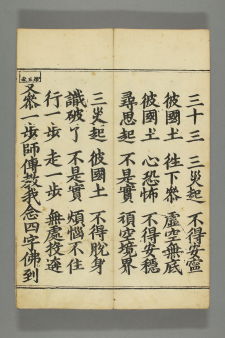 三十三 三災起 不得安寧
彼國土 往下參 虛空無底
彼國土 心恐怖 不得安穩
尋思起 不是實 頑空境界
三災起 彼國土 不得脫身
識破了 不是實 煩惱不住
行一步 走一步 無處投遶
又參一步師傅教我念四字佛到